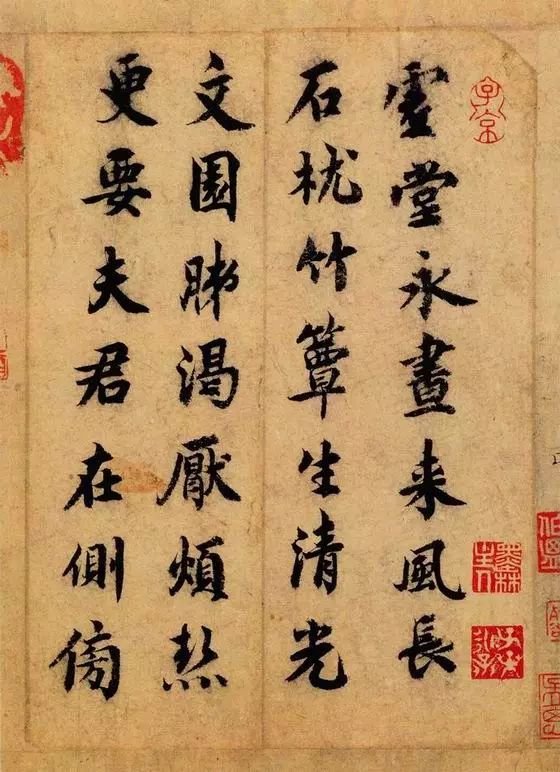 虚堂永晝来風長
石枕竹簟生清光
文園肺渴厭煩熱
更要夫君在側傍
子京